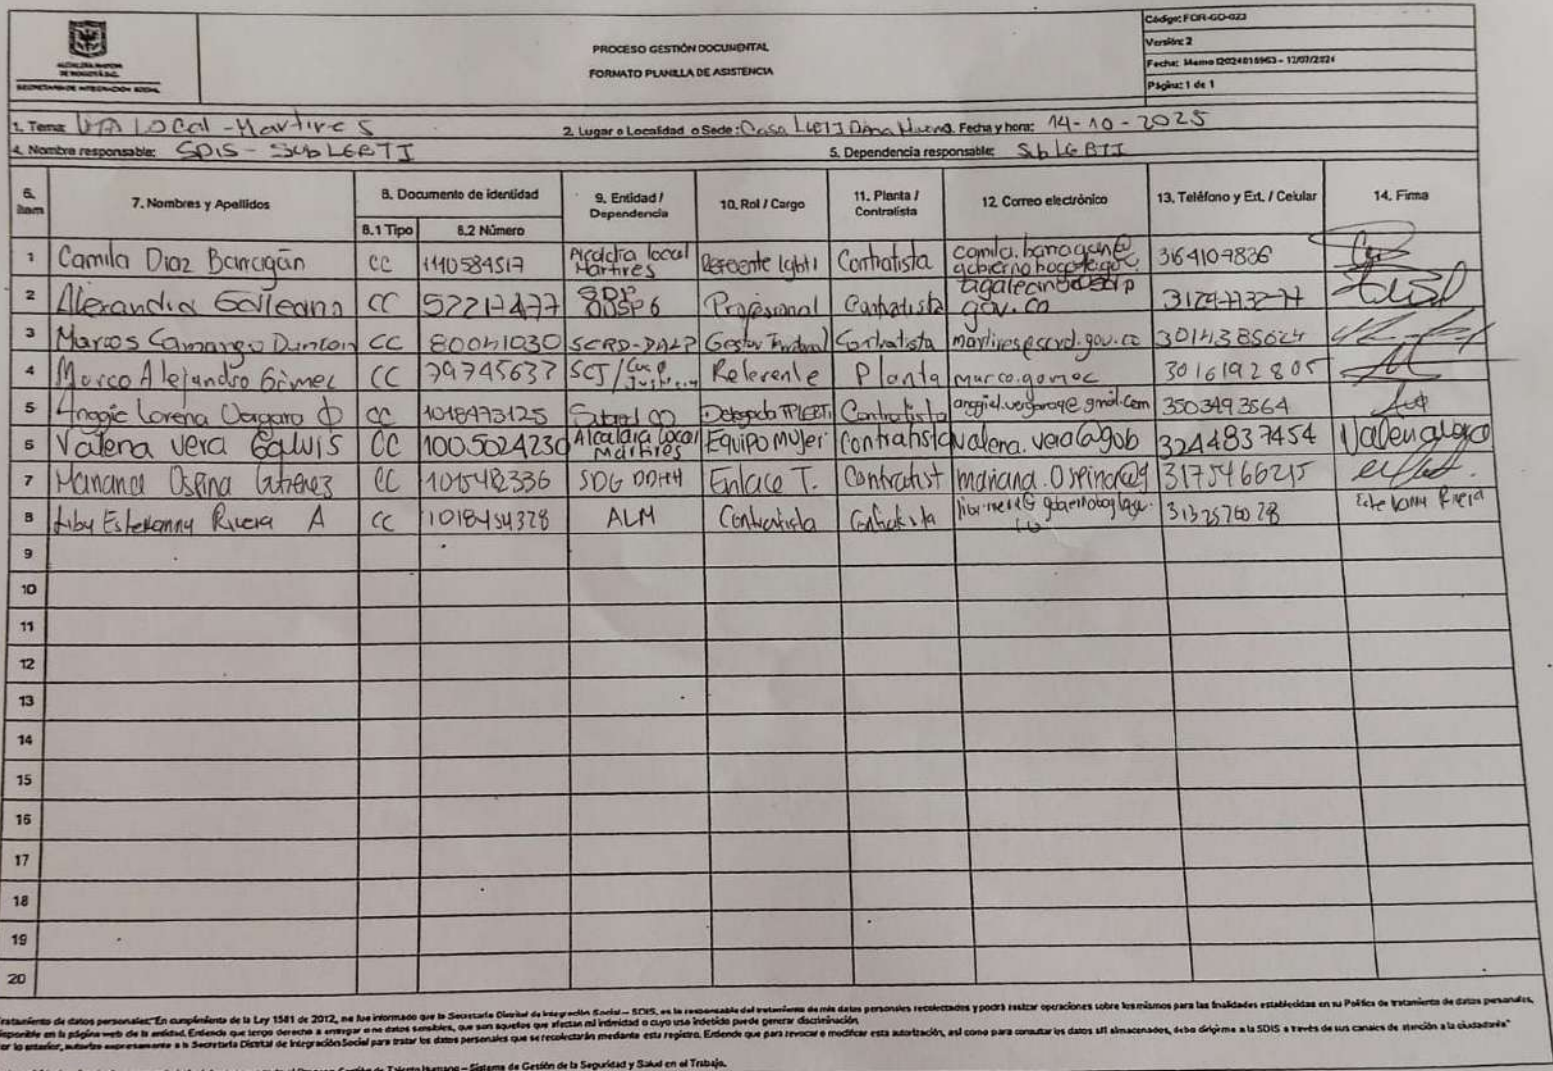 ALCALDÍA MAYOR
DE BOGOTÁ D.C.
SECRETARÍA DE INTEGRACIÓN SOCIAL
PROCESO GESTIÓN DOCUMENTAL
FORMATO PLANILLA DE ASISTENCIA
Código: FOR-GD-023
Versión: 2
Fecha: Memo I2024018963 – 12/07/2024
Página: 1 de 1
1. Tema: UTA LOCAL - Martires 2. Lugar o Localidad o Sede: Casa LGBTI Diana Navarro Fecha y hora: 14-10-2025
4. Nombre responsable: SDIS - Sub LGBTI 5. Dependencia responsable: Sub LGBTI
6. Item 7. Nombres y Apellidos 8. Documento de identidad 9. Entidad / Dependencia 10. Rol / Cargo 11. Planta / Contratista 12. Correo electrónico 13. Teléfono y Ext. / Celular 14. Firma
8.1 Tipo 8.2 Número
1 Camila Diaz Barragán CC 1140584517 Alcaldia local Martires Referente lgbti Contratista 3164107836
2 Alexandra Galeano CC Profesional Contratista
3 Marcos Camargo CC 80041030 SCRD- Contratista martires@scrd.gov.co 3014385624
4 Marco Alejandro Gómez CC 79745637 SCJ/ Referente Planta marco.gomez 3016192805
5 Anggie Lorena Vergara CC 1018473125 Contratista 3503493564
6 Valeria Vera Galvis CC 1005024230 Alcaldia Local Martires Equipo Mujer Contratista valeria.vera@gob 3244837454
7 Mariana Ospina Gutierrez CC 1015412336 SDG DDHH Enlace T. Contratist mariana.Ospina@g 3175466215
8 Liby Estekanny Rivera A CC 1018454328 ALM Contratista Contratista 3132576028
9
10
11
12
13
14
15
16
17
18
19
20
tratamiento de datos personales: "En cumplimiento de la Ley 1581 de 2012, me fue informado que la Secretaría Distrital de Integración Social – SDIS, es la responsable del tratamiento de mis datos personales recolectados y podrá realizar operaciones sobre los mismos para las finalidades establecidas en su Política de tratamiento de datos personales,
disponible en la página web de la entidad. Entiendo que tengo derecho a entregar o no datos sensibles, que son aquellos que afectan mi intimidad o cuyo uso indebido puede generar discriminación.
or lo anterior, autorizo expresamente a la Secretaría Distrital de Integración Social para tratar los datos personales que se recolectarán mediante este registro. Entiendo que para revocar o modificar esta autorización, así como para consultar los datos allí almacenados, debo dirigirme a la SDIS a través de sus canales de atención a la ciudadanía"
Gestión de Talento Humano – Sistema de Gestión de la Seguridad y Salud en el Trabajo.